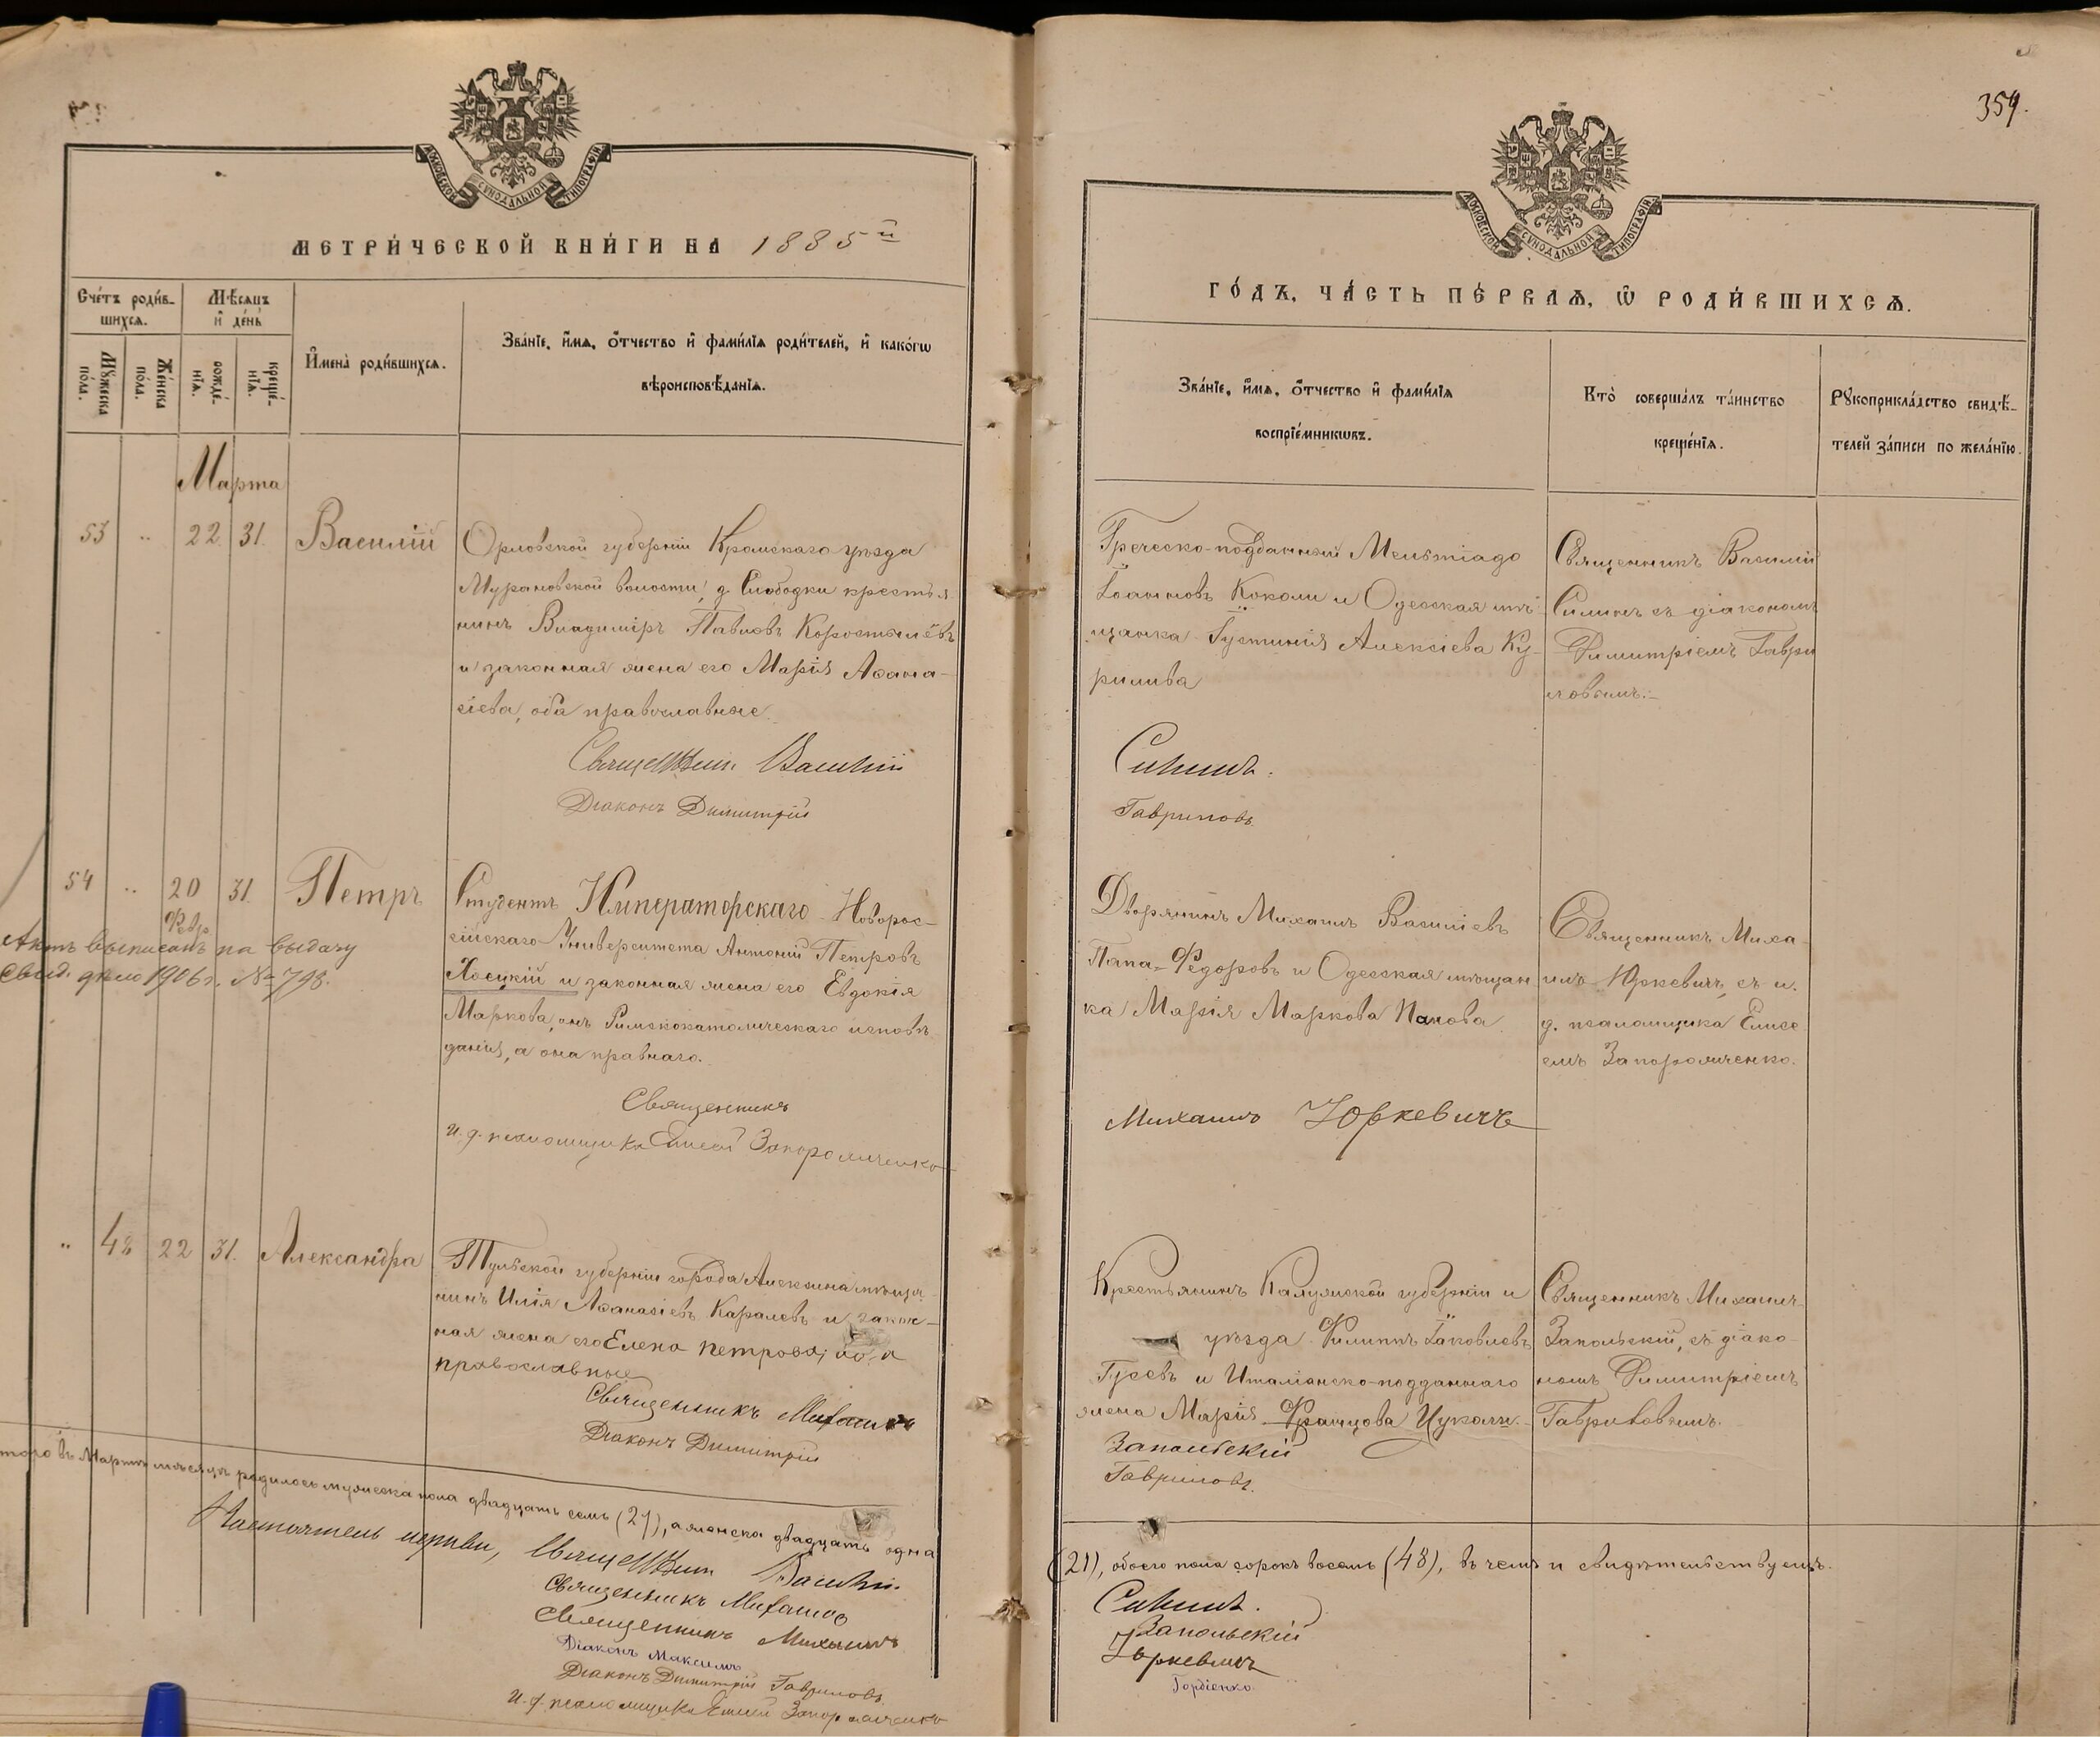 354.
МОСКОВСКОЙ СУНОДАЛЬНОЙ ТИПОГРАФІИ
МОСКОВСКОЙ СУНОДАЛЬНОЙ ТИПОГРАФІИ
МЕТРИ́ЧЕСКОЙ КНИ́ГИ НА 1885й
ГО́ДЪ, ЧА́СТЬ ПЕ́РВАѦ, Ѡ҆ РОДИ́ВШИХСѦ.
Сче́тъ роди́в-
шихсѧ.
Мꙋ́жеска по́ла.
Же́нска по́ла.
Мѣ́сѧцъ
и҆ де́нь
рожде́-нїѧ.
креще́-нїѧ.
И҆мена̀ роди́вшихсѧ.
Зва́нїе, и҆́мѧ, ѻ҆́тчество и҆ фами́лїѧ роди́телей, и҆ како́гѡ
вѣроисповѣ́данїѧ.
Зва́нїе, и҆́мѧ, ѻ҆́тчество и҆ фами́лїѧ
воспрїе́мникѡвъ.
Кто̀ соверша́лъ та́инство
креще́нїѧ.
Рꙋкоприкла́дство свидѣ́-
телей за́писи по жела́нїю.
Марта
53 .. 22 31. Василій
Орловской губерніи Кромскаго уѣзда
Мурановской волости, д. Слободки крестья
нинъ Владиміръ Павловъ Коростылёвъ
и законная жена его Марія Аѳана-
сіева, оба православные.
Священникъ Василій
Діаконъ Димитрій
Греческо-подданный Мельтіадо
Іоанновъ Коколи и Одесская мѣ-
щанка Іустинія Алексіева Ку-
рилива
Силинъ.
Гавриловъ.
Священникъ Василій
Силинъ съ діакономъ
Димитріемъ Гаври
ловымъ.-
54 .. 20 31. Петръ
Февр.
Актъ выписанъ на выдачу
свид. дѣло 1906г. № 798.
Студентъ Императорскаго Новорос-
сійскаго Университета Антоній Петровъ
Косцкій и законная жена его Евдокія
Маркова, онъ Римскокатолическаго исповѣ
данія, а она правнаго.
Священникъ
И. д. псаломщика Елисей Запорожченко
Дворянинъ Михаилъ Василіевъ
Папа-Федоровъ и Одесская мѣщан
ка Марія Маркова Панова
Михаилъ Юркевичъ
Священникъ Миха-
илъ Юркевичъ, съ и.
д. псаломщика Елисе
емъ Запорожченко.
.. 48 22 31. Александра
Тульской губерніи города Алексина мѣща-
нинъ Илія Аѳанасіевъ Каралевъ и закон-
ная жена его Елена Петрова, оба
православные
Священникъ Михаилъ
Діаконъ Димитрій
Крестьянинъ Калужской губерніи и
уѣзда Филиппъ Іаковлевъ
Гусевъ и Италіанско-подданнаго
жена Марія Францова Цукали.
Запольскій
Гавриловъ.
Священникъ Михаилъ
Запольскій, съ діако-
номъ Димитріемъ
Гавриловымъ.
того въ Мартѣ мѣсяцѣ родилось мужеска пола двадцать семь (27), а женска двадцать одна
(21), обоего пола сорокъ восемь (48), въ чемъ и свидѣтельствуемъ.
Настоятель церкви, Священникъ Василій
Силинъ.
Священникъ Михаилъ
Запольскій
Священникъ Михаилъ
Юркевичъ
Діаконъ Максимъ
Гордіенко
Діаконъ Димитрій Гавриловъ.
И. д. псаломщика Елисей Запорожченко